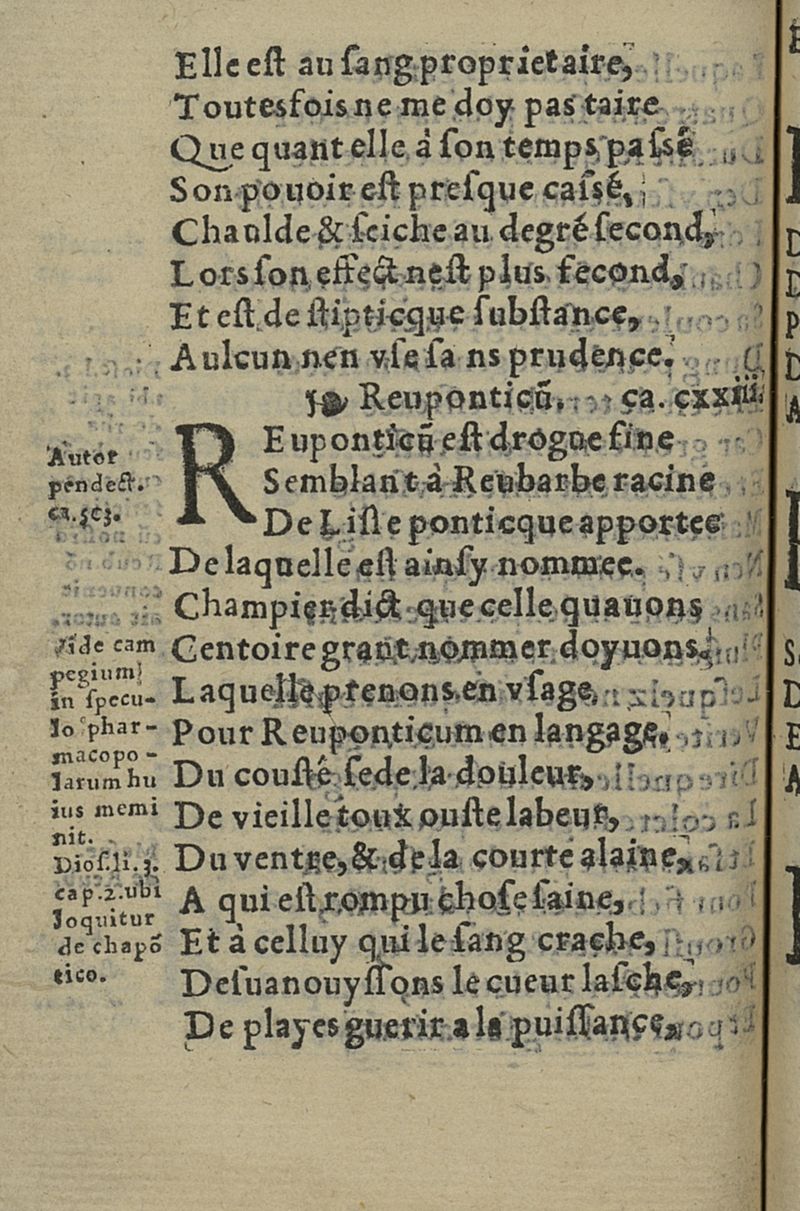 Elle est au ſang proprietaire,
Toutesfois ne me doy pas taire
Que quant elle à ſon temps paſsé
Son pouoir est preſque caſsé,
Chaulde & ſeiche au degré ſecond,
Lors ſon effect nest plus fecond,
Et est de stipticque ſubstance,
Aulcun nen vſe ſans prudence.
Reuponticũ. ca. cxxiiii.
REuponticũ est drogue fine
Semblant à Reubarbe racine
De Liſle ponticque apportee
De laquelle est ainſy nommee.
Champier dict que celle quauons
Centoire grant nommer doyuons,
Laquelle prenons en vſage,
Pour Reuponticum en langage,
Du cousté ſede la douleur,
De vieille toux ouste labeur,
Du ventre, & de la courte alaine,
A qui est rompu choſe ſaine,
Et à celluy qui le ſang crache,
Deſuanouyſſons le cueur laſche,
De playes guerir a la puiſſance,
Autor
pendect.
ca.
Uide cam
pegium
in ſpecu-
lo phar-
macopo-
larum hu
ius memi
nit.
Dioſ. li. 3.
cap. 2. ubi
loquitur
de chapõ
tico.